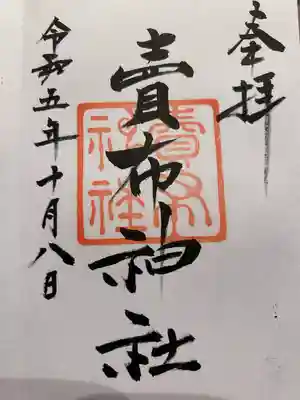 奉拝
賣布神社
賣布神社
令和五年十月八日